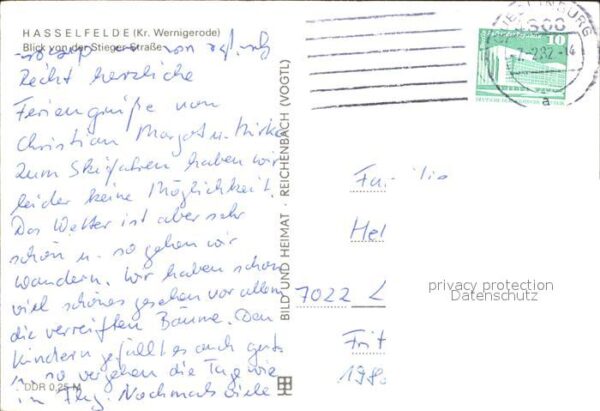 HASSELFELDE (Kr. Wernigerode)
Blick von der Stieger Straße
von
Recht herzliche
Feriengrüße von
Christian Margot u. Mirko
Zum Skifahren haben wir
leider keine Möglichkeit.
Das Wetter ist aber sehr
schön u. so gehen wir
wandern. Wir haben schon
viel schönes gesehen vor allem
die verreiften Bäume. Den
Kindern gefällt es auch gut
u. so vergehen die Tage wie
im Flug. Nochmals viele
DDR 0,25 M
BILD UND HEIMAT · REICHENBACH (VOGTL)
QUEDLINBURG
10
Familie
Hel
7022 L
Frit
198
privacy protection
Datenschutz